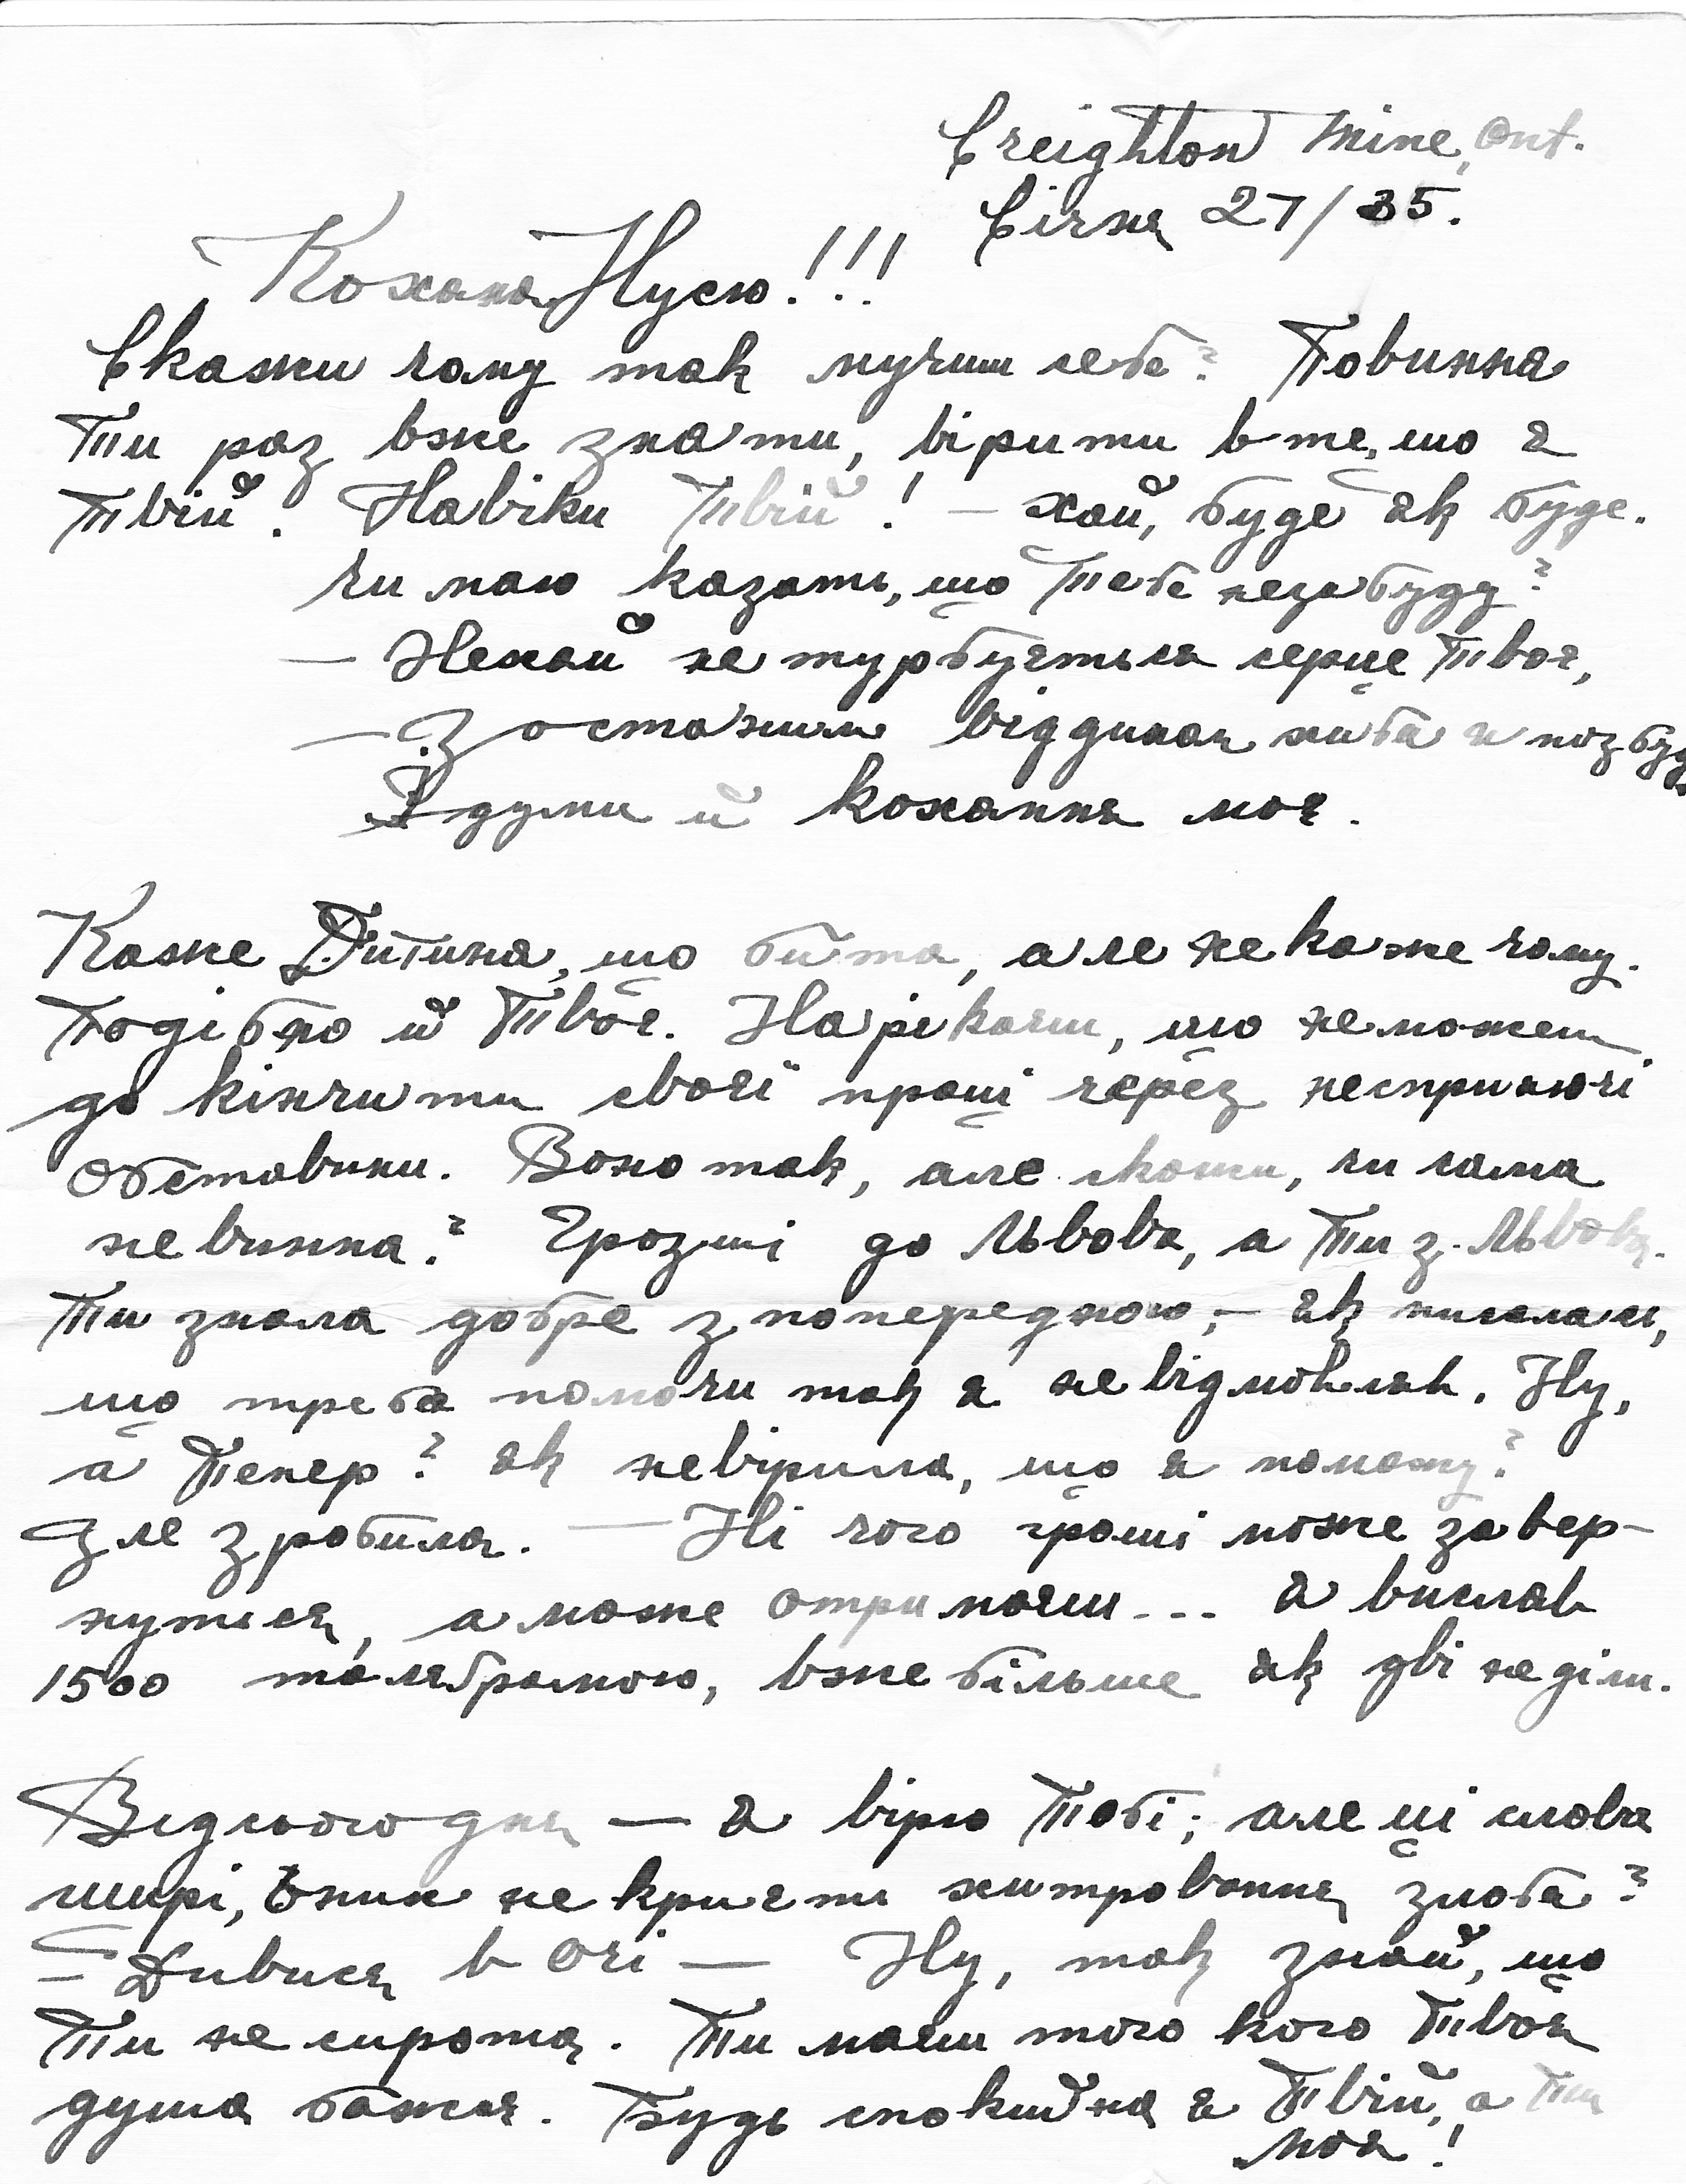 Creighton Mine, Ont.
Січня 27/35.
Кохана Нусю!!!
Скажи чому так мучиш себе? Повинна
Ти раз вже знати, вірити в те, що я
Твій. Навіки Твій! — хай, буде як буде.
Чи маю казать, що Тебе незабуду?
— Нехай не турбується серце Твоє,
— З останим віддихом хиба я позбуду
І думи й кохання моє.
Каже Дитина, що бита, але не каже чому.
Подібно й Твоє. Нарікаєш, що не можеш
до кінчити своєї праці через несприяючі
обставини. Воно так, але скажи, чи сама
не винна? Грошзі до Львова, а Ти з Львова.
Ти знала добре з попередного, — як писалась,
що треба помочи так я не відмовляв. Ну,
а Тепер? як невірила, що я поможу?
Зле зробила. — Ні чого гроші може завер-
нуться, а може отримаєш... я вислав
1500 телєграмою, вже більше як дві неділи.
Від нього дня — я вірю Тобі; але ці слова
щирі, в них не криєти хитровання злоба?
— Дивися в очі — Ну, так знай, що
Ти не сирота. Ти маєш того кого Твоя
душа бажає. Будь спокійна я Твій, а Ти
моя!